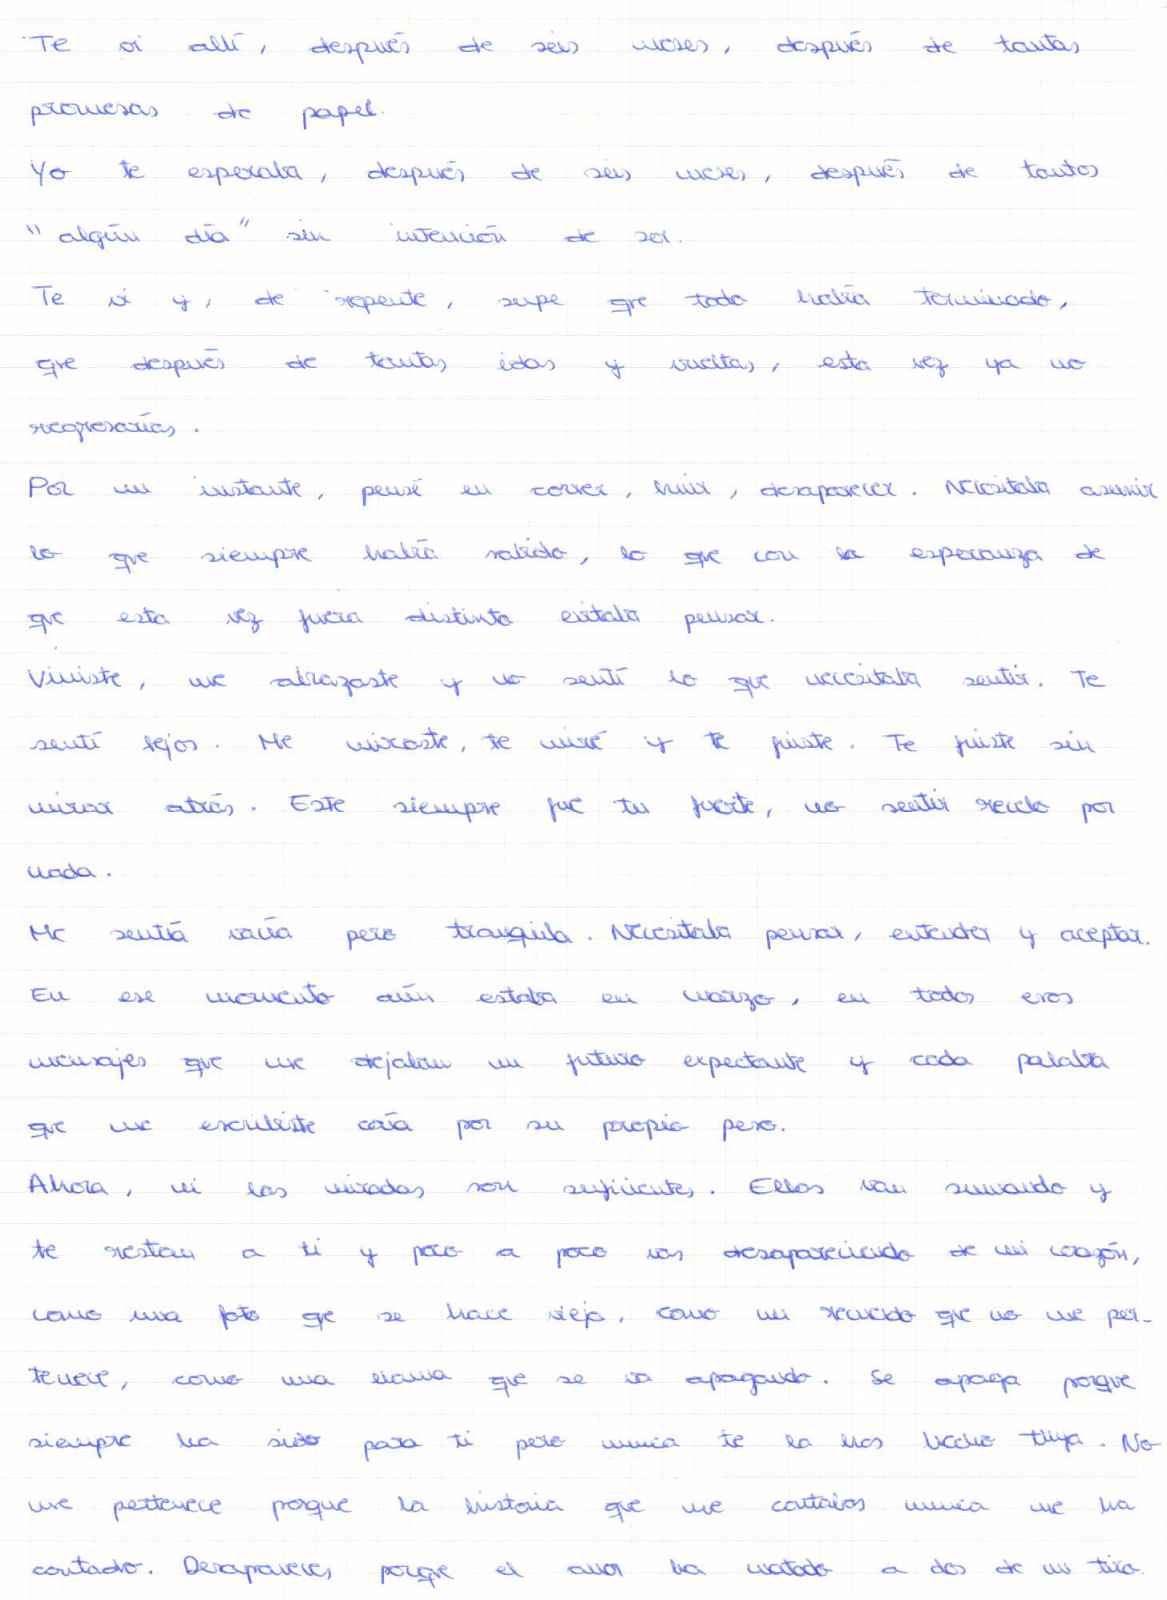 Te vi allí, después de seis meses, después de tantas
promesas de papel.
Yo te esperaba, después de seis meses, después de tantos
"algún día" sin intención de ser.
Te vi y, de repente, supe que todo había terminado,
que después de tantas idas y vueltas, esta vez ya no
regresarías.
Por un instante, pensé en correr, huir, desaparecer. Necesitaba asumir
lo que siempre había sabido, lo que con la esperanza de
que esta vez fuera distinto evitaba pensar.
Viniste, me abrazaste y no sentí lo que necesitaba sentir. Te
sentí lejos. Me miraste, te miré y te fuiste. Te fuiste sin
mirar atrás. Este siempre fue tu fuerte, no sentir recelo por
nada.
Me sentía vacía pero tranquila. Necesitaba pensar, entender y aceptar.
En ese momento aún estaba en marzo, en todos esos
mensajes que me dejaban un futuro expectante y cada palabra
que me escribiste caía por su propio peso.
Ahora, ni las miradas son suficientes. Ellas van sumando y
te restan a ti y poco a poco vas desapareciendo de mi corazón,
como una foto que se hace vieja, como un recuerdo que no me per-
tenece, como una llama que se va apagando. Se apaga porque
siempre ha sido para ti pero nunca te la has hecho tuya. No
me pertenece porque la historia que me contabas nunca me ha
contado. Desapareces, porque el amor ha matado a dos de un tiro.